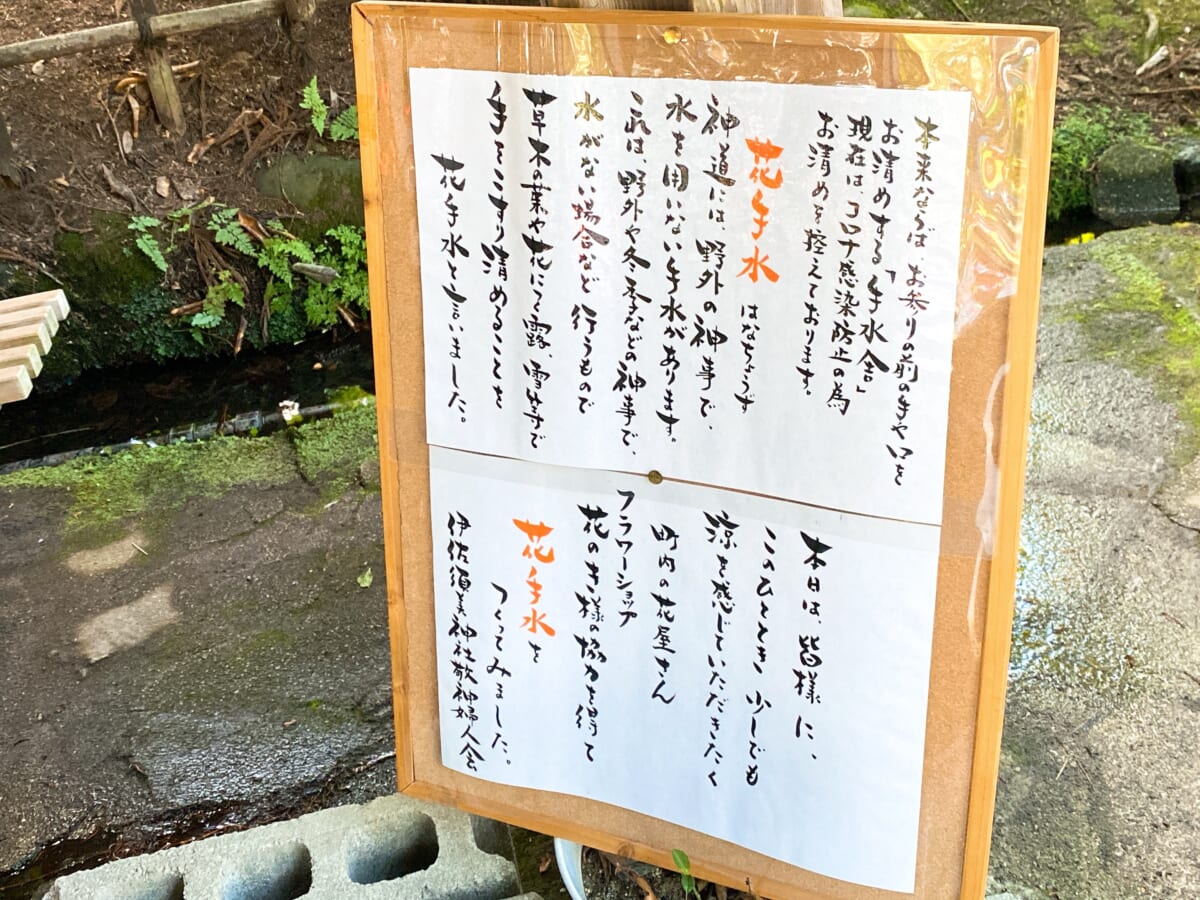 本来ならば、お参りの前の手や口を
お清めする「手水舎」
現在は、コロナ感染防止の為
お清めを控えております。
花手水 はなちょうず
神道には、野外の神事で、
水を用いない手水があります。
これは、野外や冬季などの神事で、
水がない場合など行うもので
草木の葉や花にて露、雪等で
手をこすり清めることを
花手水と言いました。
本日は、皆様に、
このひととき 少しでも
涼を感じていただきたく
町内の花屋さん
フラワーショップ
花のき様の協力を得て
花手水を
つくってみました。
伊佐須美神社敬神婦人会